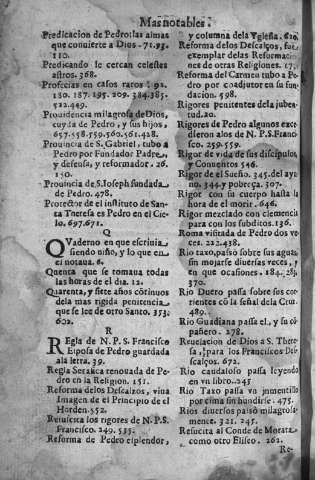 Mas notables.
Predicacion de Pedro: las almas
que conuierte a Dios. 71. 93.
110.
Predicando le cercan celestes
astros. 368.
Profecias en casos raros: 92.
180. 187. 195. 209. 384. 385.
522. 449.
Prouidencia milagrosa de Dios,
cuyda de Pedro, y sus hijos,
657. 558. 559. 560. 561. 428.
Prouincia de S. Gabriel, tubo a
Pedro por Fundador Padre,
y defensa, y reformador. 26.
150.
Prouincia de S. Ioseph fundada
de Pedro. 478.
Protector de el instituto de San-
ta Theresa es Pedro en el Cie-
lo. 697. 671.
Q
QVaderno en que escriuia
siendo niño, y lo que en
el notaua. 6.
Quenta que se tomaua todas
las horas de el dia. 12.
Quarenta, y siete años cōtinuos
de la mas rigida penitencia
que se lee de otro Santo. 353.
602.
R
REgla de N. P. S. Francisco
Esposa de Pedro guardada
a la letra. 39.
Regla Serafica renouada de Pe-
dro en la Religion. 151.
Reforma de los Descalzos, viua
Imagen de el Principio de el
Horden. 552.
Resuscita los rigores de N. P. S.
Francisco. 249. 535.
Reforma de Pedro esplendor,
y columna de la Yglesia. 620.
Reforma de los Descalços, fue
exemplar de las Reformacio-
nes de otras Religiones. 17.
Reforma del Carmen tubo a Pe-
dro por coadjutor en su fun-
dacion. 598.
Rigores penitentes de la juben-
tud. 20.
Rigores de Pedro algunos exce-
dieron a los de N. P. S. Franci-
sco. 259. 559.
Rigor de vida de sus discipulos
y Conuentos 546.
Rigor de el Sueño. 345. del ayu-
no. 344. y pobreça. 307.
Rigor con su cuerpo hasta la
hora de el morir. 646.
Rigor mezclado con clemencia
para con los subditos. 136.
Roma visitada de Pedro dos ve-
ces. 222. 438.
Rio taxo, passo sobre sus aguas
sin mojarse diuersas veces, y
en que ocasiones. 184. 283.
370.
Rio Duero passa sobre sus cor-
rientes cō la señal de la Cruz.
489.
Rio Guadiana passa el, y su cō-
pañero. 278.
Reuelacion de Dios a S. There-
sa, para los Franciscos Des-
calços. 672.
Rio caudaloso passa leyendo
en vn libro. 245
Rio Taxo passa vn jumentillo
por cima sin hundirse. 475.
Rios diuersos passò milagrosa-
mente. 321. 245.
Resucita al Conde de Morata
como otro Eliseo. 262.
Re-